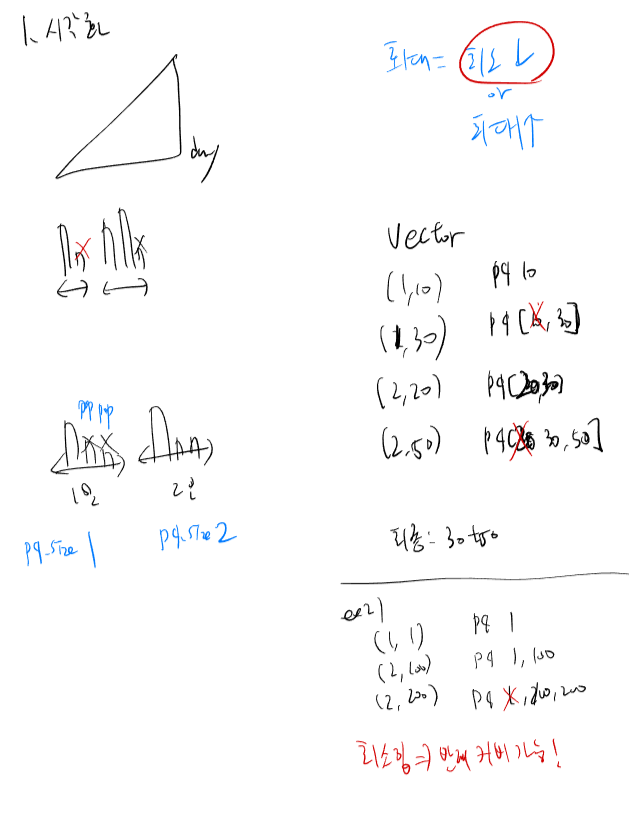 1. 시각화
day
pp pp
1일
2일
pq.size 1
pq.size 2
최대 = 최소 ↓
or
최대 ↑
Vector
(1,10) pq 10
(1,30) pq [10, 30]
(2,20) pq[20,30]
(2,50) pq[20 30, 50]
최종: 30+50
ex2)
(1, 1) pq 1
(2, 100) pq 1, 100
(2, 200) pq 1, 100, 200
최소힙 => 반례 커버 가능!